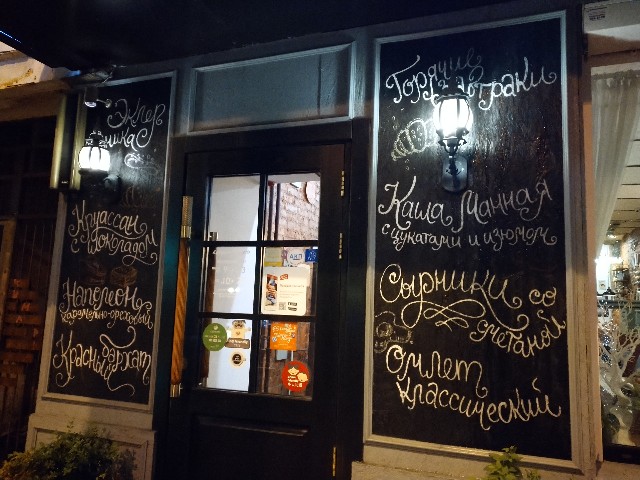 Эклер
Круассан
с шоколадом
Наполеон
карамельно-ореховый
Красный бархат
Горячие
завтраки
Каша Манная
с цукатами и изюмом
Сырники со
сметаной
Омлет
классический